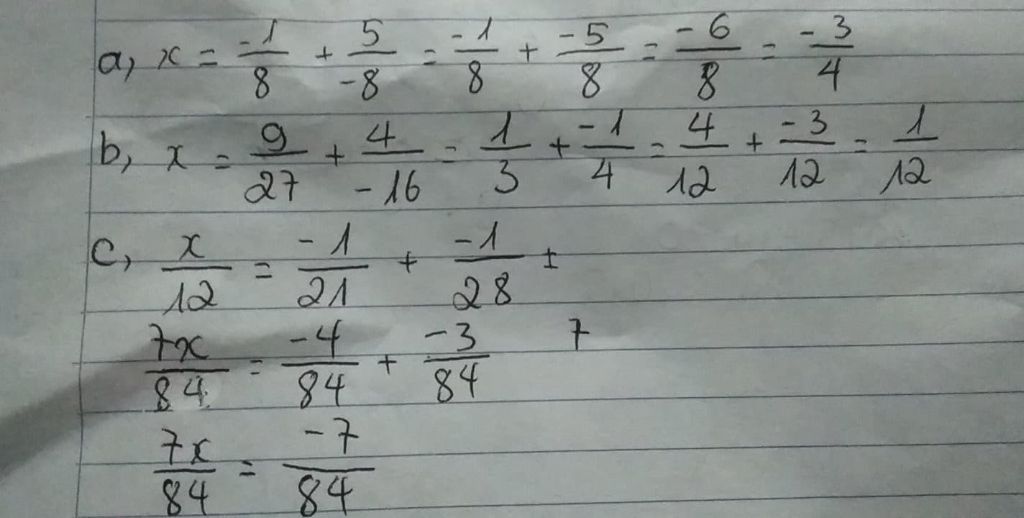 a, x = -1/8 + 5/-8 = -1/8 + -5/8 = -6/8 = -3/4
b, x = 9/27 + 4/-16 = 1/3 + -1/4 = 4/12 + -3/12 = 1/12
c, x/12 = -1/21 + -1/28 ±
7x/84 = -4/84 + -3/84 7
7x/84 = -7/84